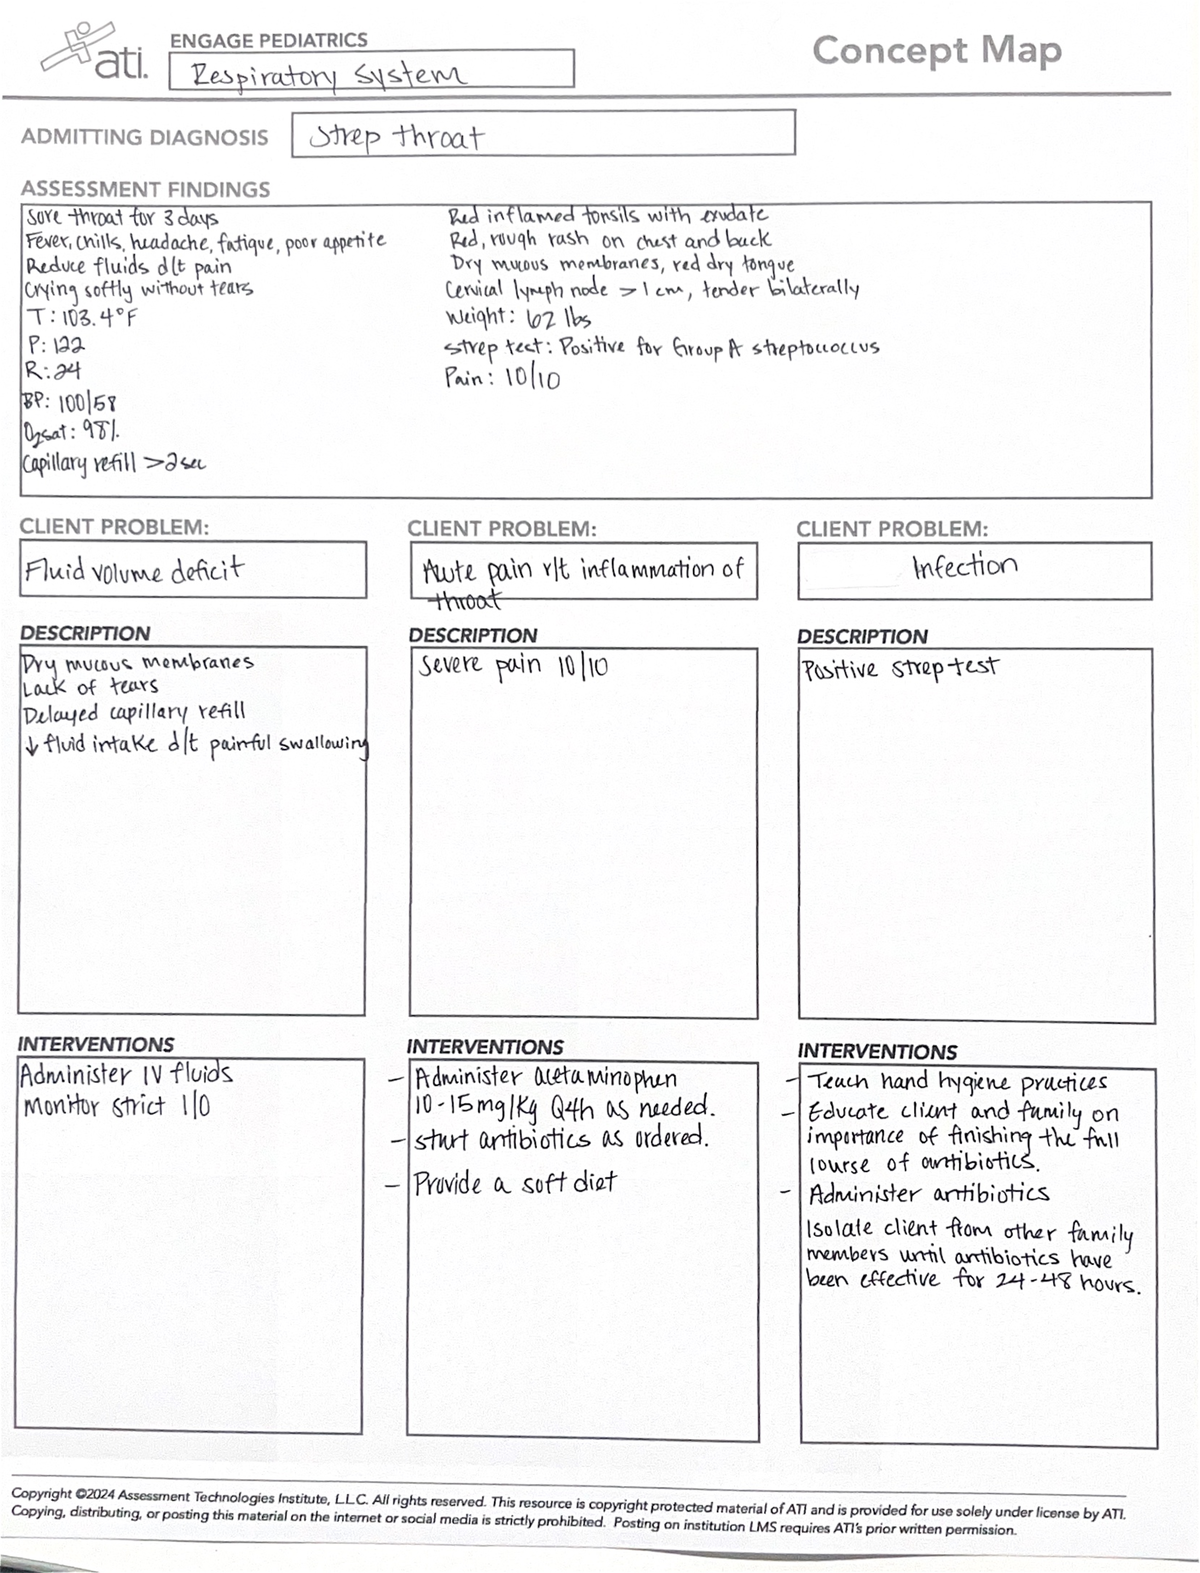 ati.
ENGAGE PEDIATRICS
Respiratory system
Concept Map
ADMITTING DIAGNOSIS
Strep throat
ASSESSMENT FINDINGS
Sore throat for 3 days
Fever, chills, headache, fatigue, poor appetite
Reduce fluids d/t pain
Crying softly without tears
T: 103.4°F
P: 122
R: 24
BP: 100/58
O2sat: 98%
Capillary refill >2sec
Red inflamed tonsils with exudate
Red, rough rash on chest and back
Dry mucous membranes, red dry tongue
Cervical lymph node >1cm, tender bilaterally
Weight: 62 lbs
Strep test: Positive for Group A streptococcus
Pain: 10/10
CLIENT PROBLEM:
Fluid volume deficit
DESCRIPTION
Dry mucous membranes
Lack of tears
Delayed capillary refill
↓ fluid intake d/t painful swallowing
INTERVENTIONS
Administer IV fluids
Monitor strict I/O
CLIENT PROBLEM:
Acute pain r/t inflammation of
throat
DESCRIPTION
Severe pain 10/10
INTERVENTIONS
- Administer acetaminophen
10-15mg/kg Q4h as needed.
- start antibiotics as ordered.
- Provide a soft diet
CLIENT PROBLEM:
Infection
DESCRIPTION
Positive strep test
INTERVENTIONS
- Teach hand hygiene practices
- Educate client and family on
importance of finishing the full
course of antibiotics.
- Administer antibiotics
Isolate client from other family
members until antibiotics have
been effective for 24-48 hours.
Copyright ©2024 Assessment Technologies Institute, L.L.C. All rights reserved. This resource is copyright protected material of ATI and is provided for use solely under license by ATI.
Copying, distributing, or posting this material on the internet or social media is strictly prohibited. Posting on institution LMS requires ATI's prior written permission.